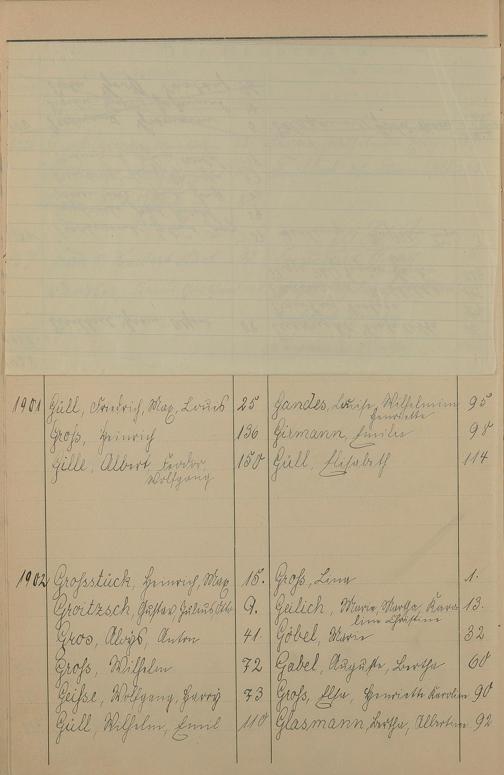 1901 Güll, Friedrich, Max, Louis 25 Gandes, Louise, Wilhelmine 95
Henriette
Groß, Heinrich 136 Girmann, Emilie 98
Gille, Albert, Feodor 150 Güll, Elisabeth 114
Wolfgang
1902 Grossstück, Heinrich, Max 15. Groß, Lina 1.
Groitzsch, Gustav Julius, Otto 9. Geilich, Marie, Martha, Karo- 13.
line Christine
Gros, Aloys, Anton 41 Göbel, Marie 32
Groß, Wilhelm 72 Gabel, Auguste, Bertha 60
Geiße, Wolfgang, Harry 73 Groß, Elsa, Henriette Karoline 90
Güll, Wilhelm, Emil 110 Glasmann, Bertha, Albertine 92